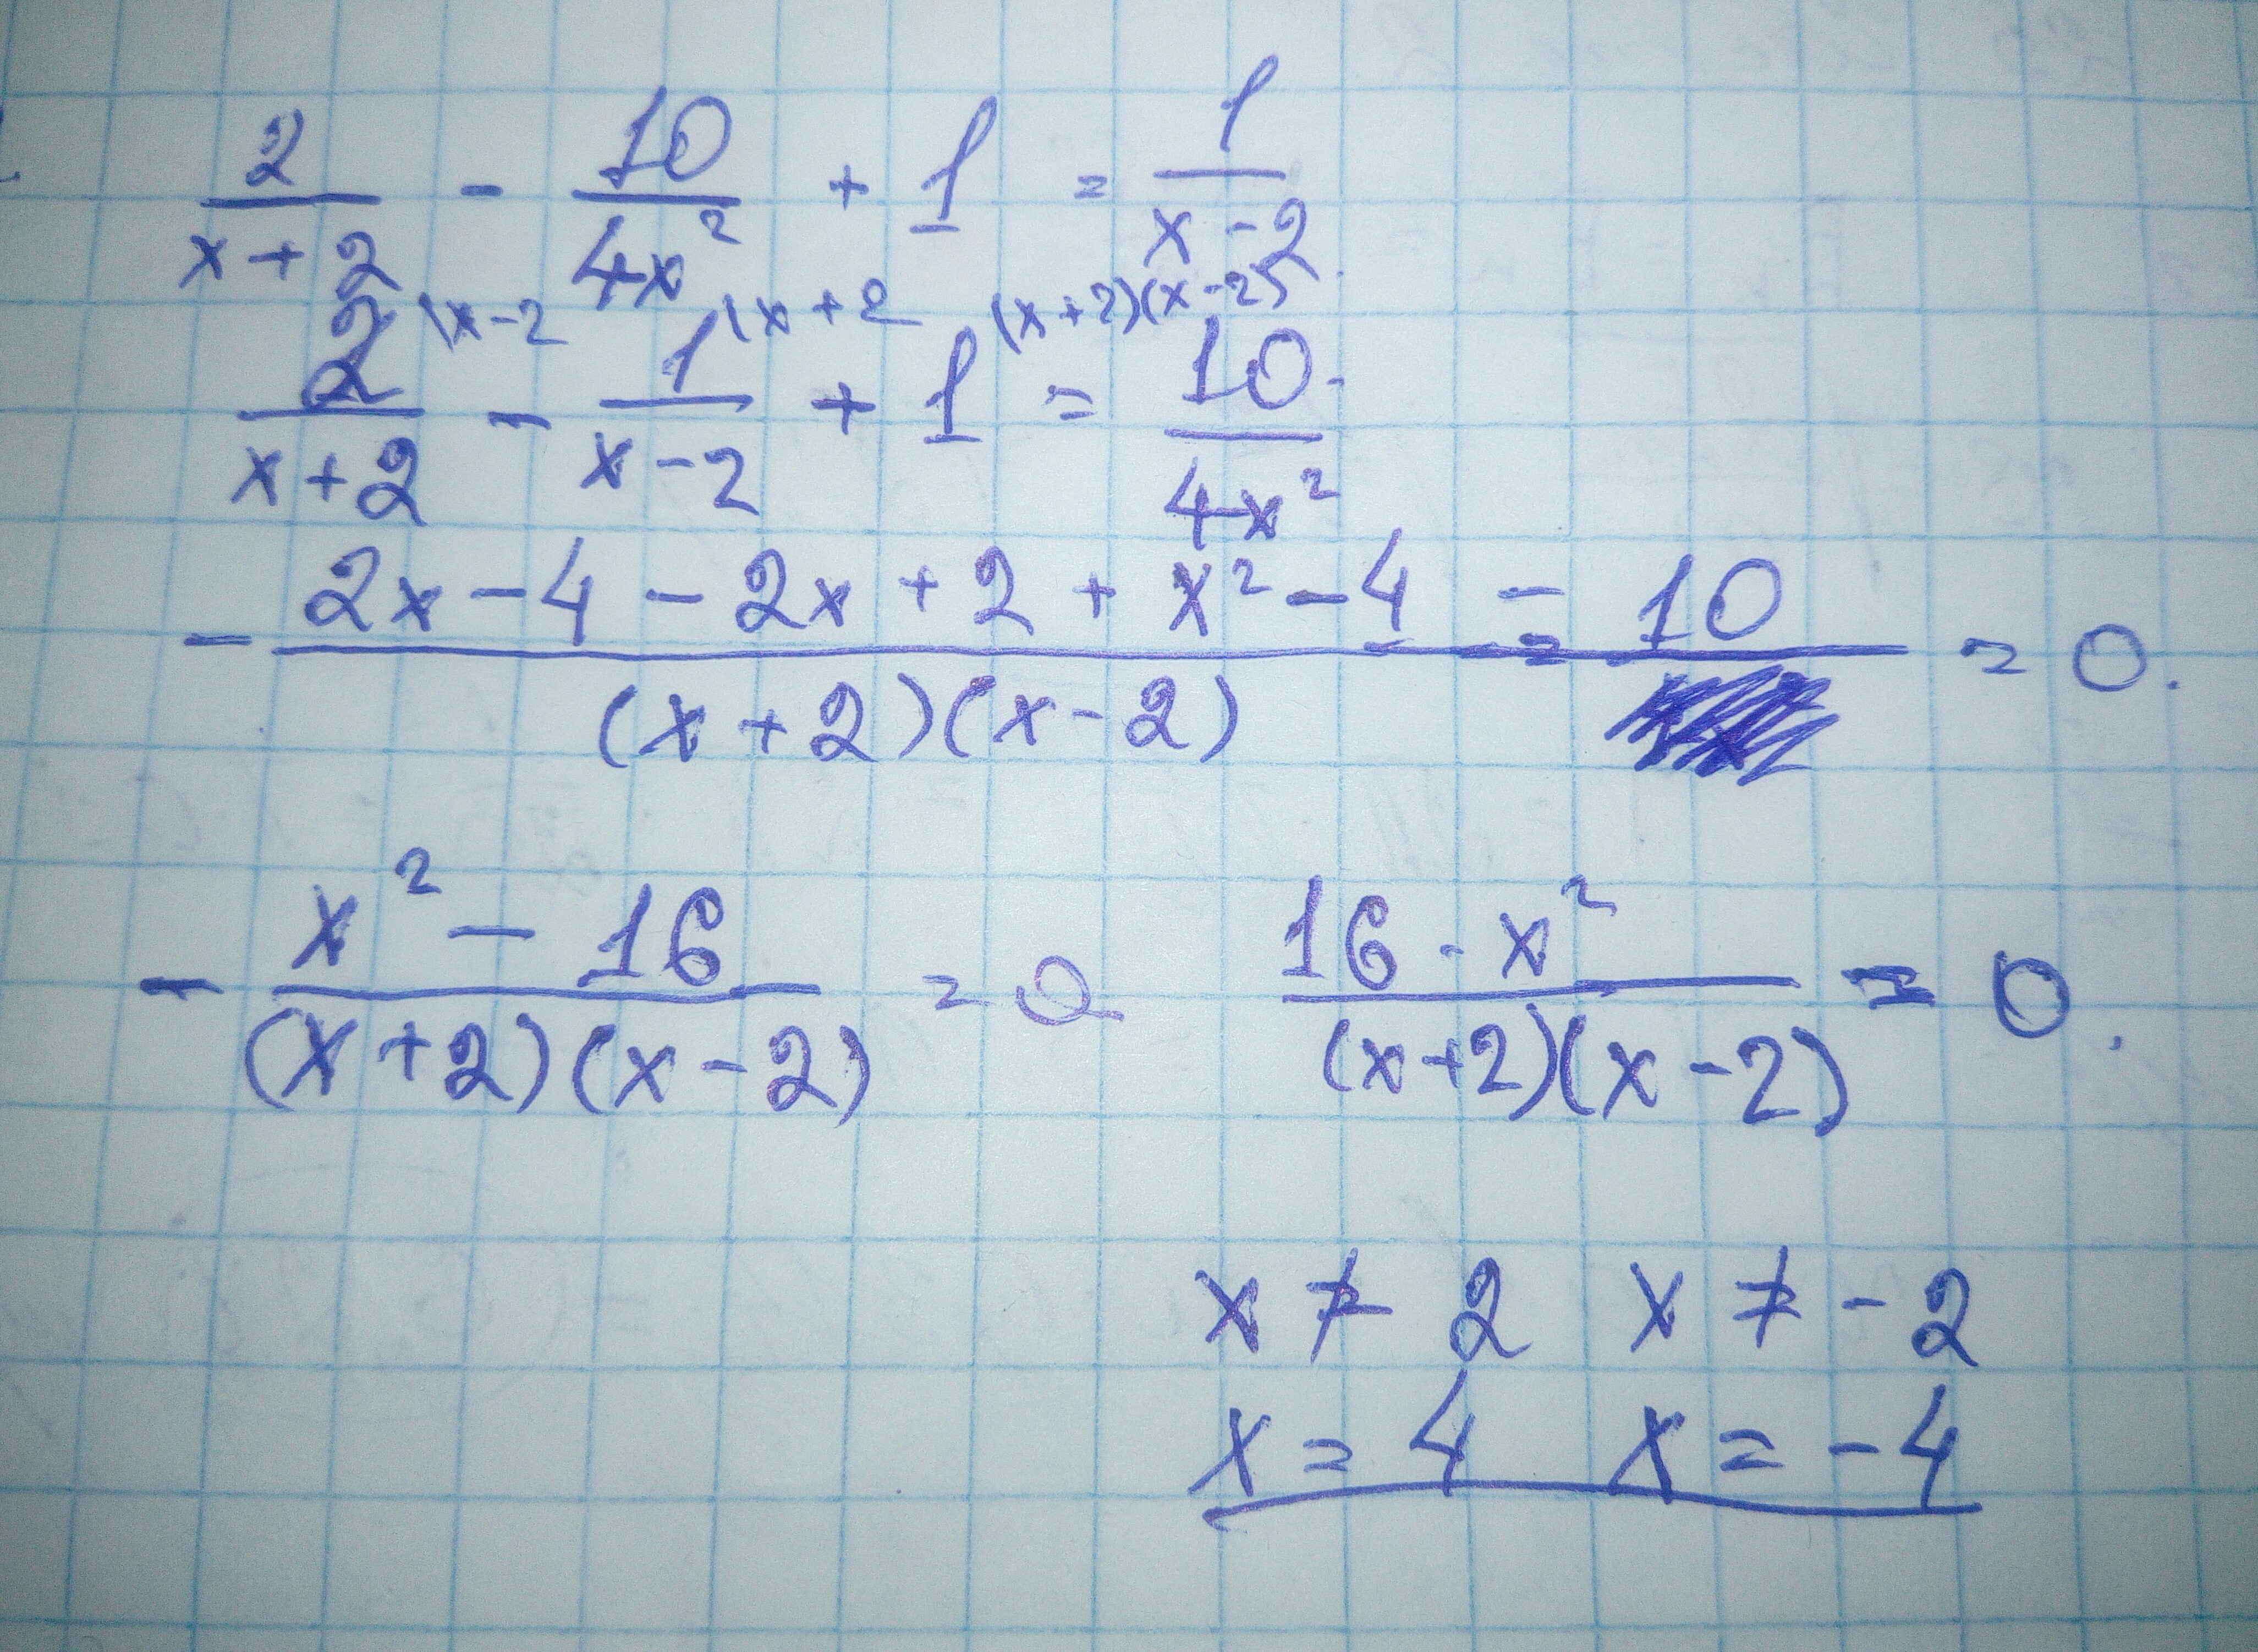 2/(x+2) - 10/(4x²) + 1 = 1/(x-2)
2/(x+2) \x-2 - 1/(x-2) \x+2 + 1 (x+2)(x-2) = 10/(4x²)
- (2x-4-2x+2+x²-4-10)/((x+2)(x-2)) = 0.
- (x²-16)/((x+2)(x-2)) = 0 (16-x²)/((x+2)(x-2)) = 0.
x ≠ 2 x ≠ -2
x = 4 x = -4